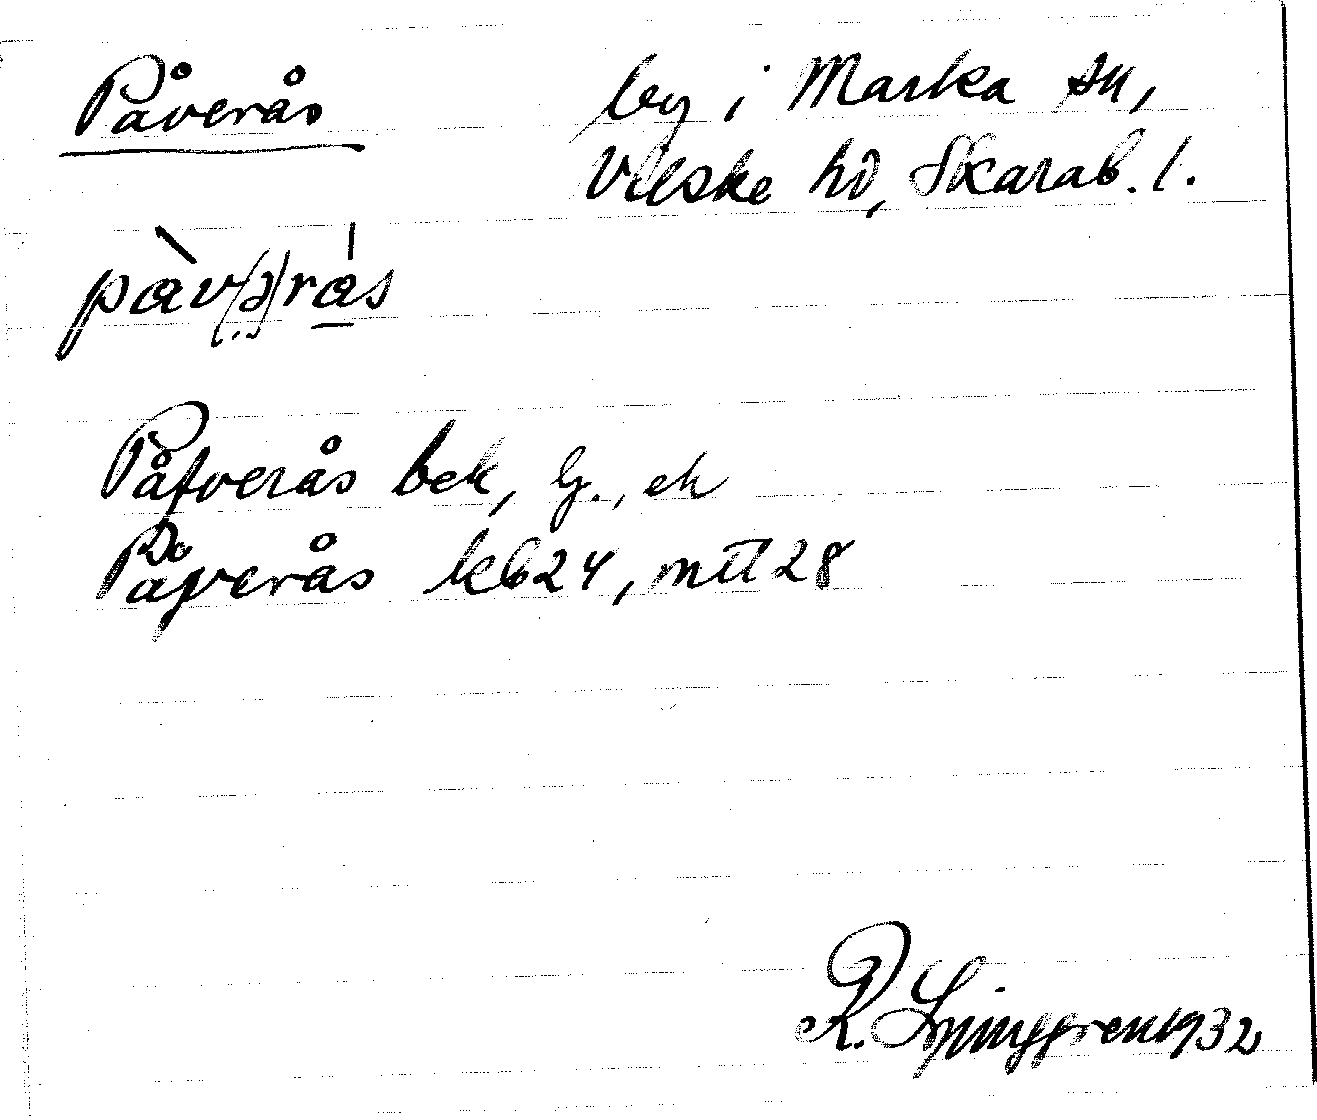 Påverås by i Marka sn,
Vilske hd, Skarab. l.
pàv(ə)rás
Påfverås bek, G., ek
Påverås kb24, mtl 28
R. Ljunggren 1932